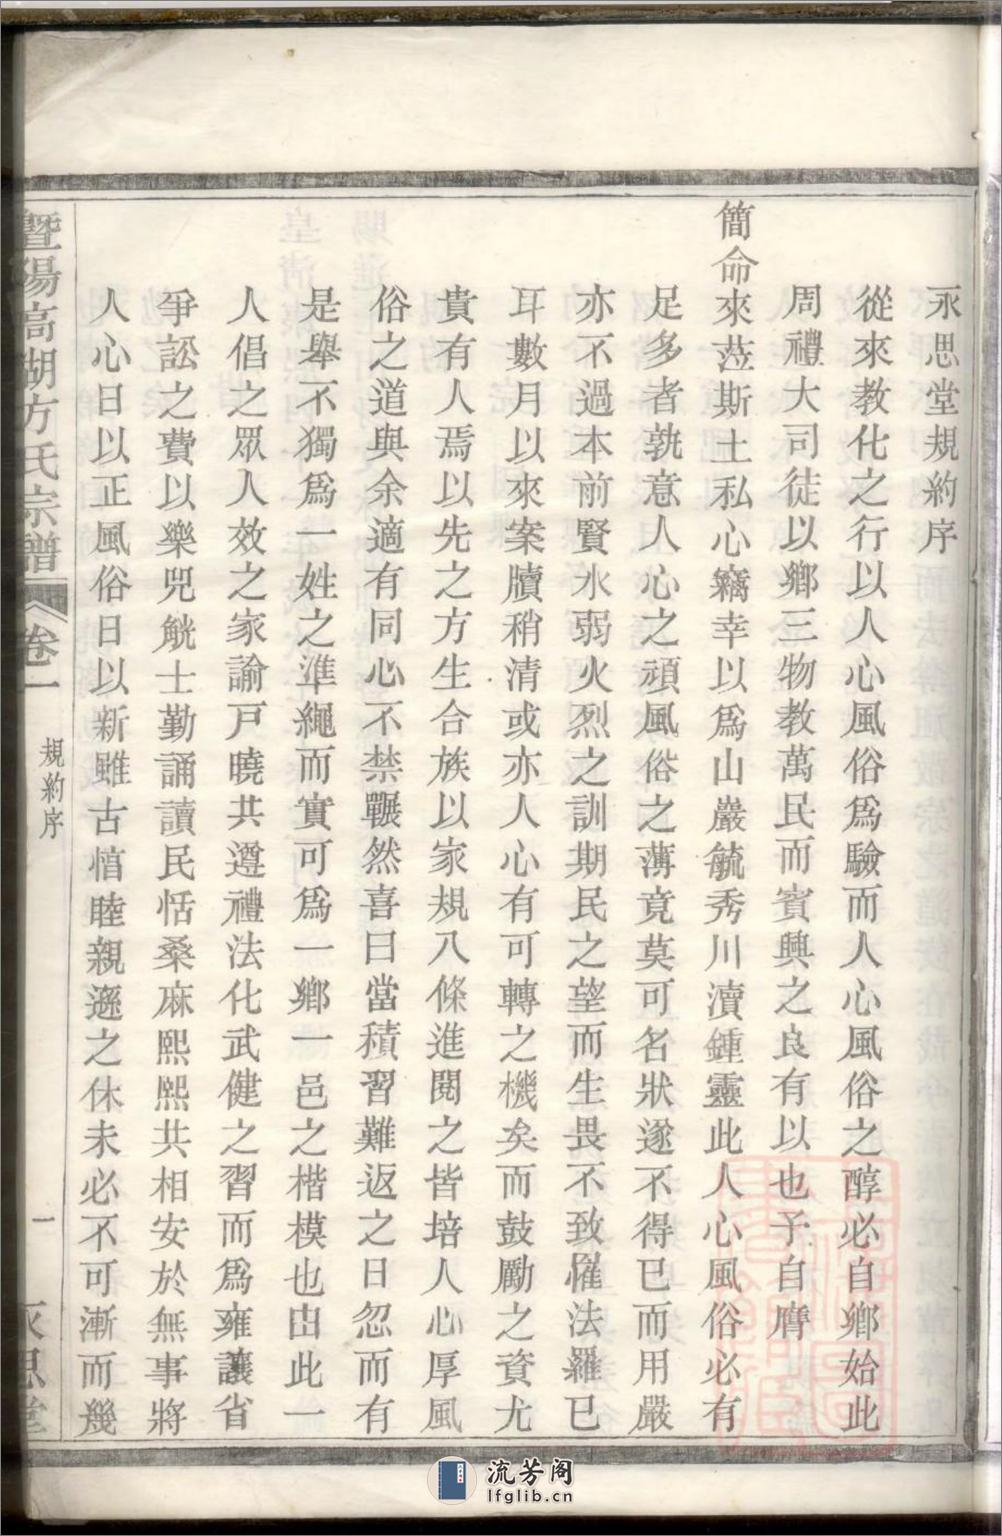 永思堂規約序
從來教化之行以人心風俗爲驗而人心風俗之醇必自鄉始此
周禮大司徒以鄉三物教萬民而賓興之良有以也予自膺
簡命來蒞斯土私心竊幸以爲山巖毓秀川瀆鍾靈此人心風俗必有
足多者孰意人心之頑風俗之薄竟莫可名狀遂不得已而用嚴
亦不過本前賢水弱火烈之訓期民之望而生畏不致罹法羅已
耳數月以來案牘稍清或亦人心有可轉之機矣而鼓勵之資尤
貴有人焉以先之方生合族以家規八條進閱之皆培人心厚風
俗之道與余適有同心不禁囅然喜曰當積習難返之日忽而有
是舉不獨爲一姓之準繩而實可爲一鄉一邑之楷模也由此一
人倡之眾人效之家諭戸曉共遵禮法化武健之習而爲雍讓省
爭訟之費以樂兕觥士勤誦讀民恬桑麻熙熙共相安於無事將
人心日以正風俗日以新雖古愔睦親遜之休未必不可漸而幾
暨陽高湖方氏宗譜
卷一
規約序
一
永思堂
流芳阁
lfglib.cn